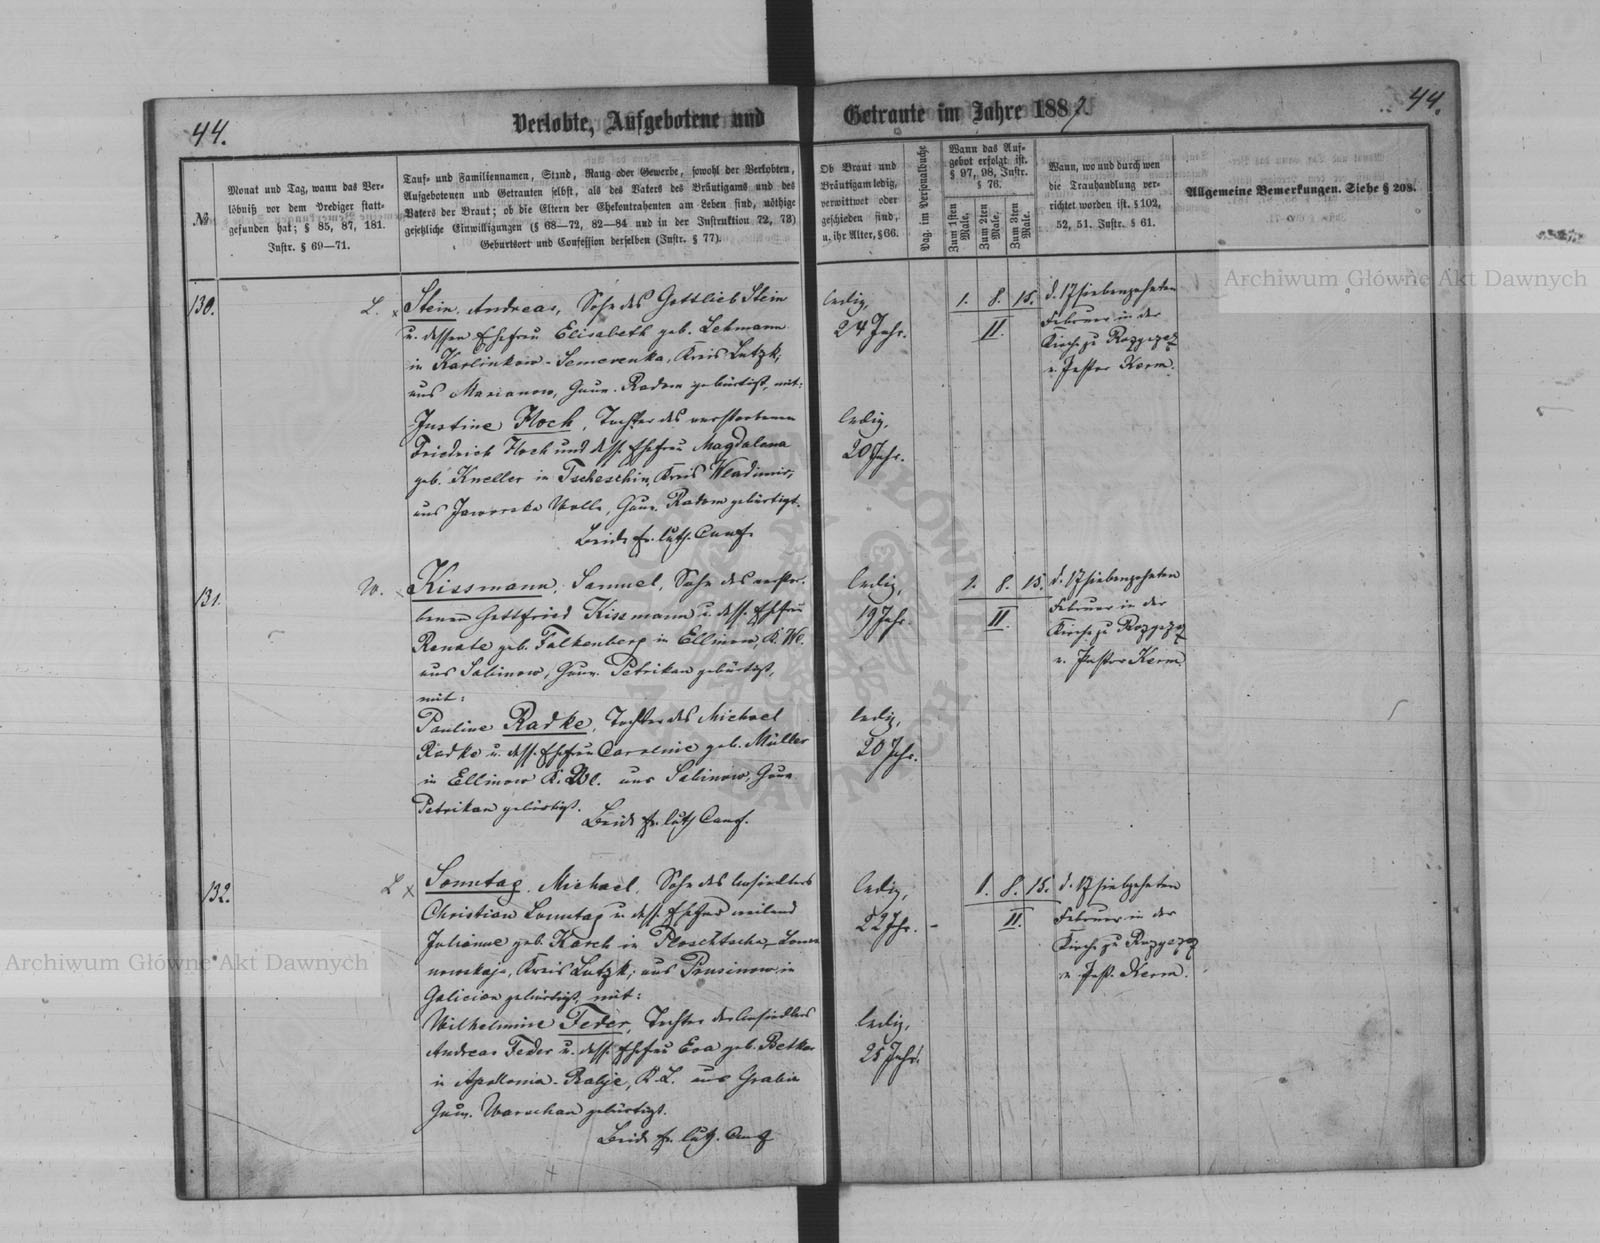 44.
Verlobte, Aufgebotene und
Getraute im Jahre 1882.
44.
№
Monat und Tag, wann das Ver-
löbniß vor dem Prediger statt-
gefunden hat; § 85, 87, 181.
Instr. § 69—71.
Tauf- und Familiennamen, Stand, Rang oder Gewerbe, sowohl der Verlobten,
Aufgebotenen und Getrauten selbst, als des Vaters des Bräutigams und des
Vaters der Braut; ob die Eltern der Ehekontrahenten am Leben sind, nöthige
gesetzliche Einwilligungen (§ 68—72, 82—84 und in der Instruktion 72, 73)
Geburtsort und Confession derselben (Instr. § 77).
Ob Braut und
Bräutigam ledig,
verwittwet oder
geschieden sind,
u. ihr Alter, § 66.
Pag. im Personalbuche.
Wann das Auf-
gebot erfolgt ist.
§ 97, 98, Instr.
§ 76.
Zum 1sten
Male.
Zum 2ten
Male.
Zum 3ten
Male.
Wann, wo und durch wen
die Trauhandlung ver-
richtet worden ist. § 102,
52, 51. Instr. § 61.
Allgemeine Bemerkungen. Siehe § 208.
130.
L.
Stein, Andreas, Sohn des Gottlieb Stein
u. dessen Ehefrau Elisabeth geb. Lehmann
in Karlinkow-Semerenka, Kreis Lutzk,
aus Marianow, Gouv. Radom gebürtigt, mit:
Justine Hoch, Tochter des verstorbenen
Friedrich Hoch und dess. Ehefrau Magdalena
geb. Kneller in Tscheschin, Kreis Wladimir,
aus Jaworska Wolla, Gouv. Radom gebürtigt.
Beide ev. luth. Conf.
ledig,
24 Jahr.
ledig,
20 Jahr.
1. 8. 15.
II.
d. 17 siebenzehnten
Februar in der
Kirche zu Rozyszcz
v. Pastor Kerm.
131.
W.
Kissmann, Samuel, Sohn des verstor-
benen Gottfried Kissmann u. dess. Ehefrau
Renate geb. Falkenberg in Ellinow, K. Wl.
aus Sabinow, Gouv. Petrikau gebürtigt,
mit:
Pauline Radke, Tochter des Michael
Radke u. dess. Ehefrau Caroline geb. Müller
in Ellinow K. Wl. aus Sabinow, Gouv
Petrikau gebürtigt.
Beide ev. luth Conf.
ledig,
19 Jahr.
ledig,
20 Jahr.
1. 8. 15.
II.
d. 17 siebenzehnten
Februar in der
Kirche zu Rozyszcz
v. Pastor Kerm
132.
L
Sonntag, Michael, Sohn des Ansiedlers
Christian Sonntag u. dess. Ehefrau weiland
Julianne geb. Karch in
Kreis Lutzk, aus in
Galicien gebürtigt, mit:
Wilhelmine Feder, Tochter des Ansiedlers
Andreas Feder u. dess. Ehefrau Eva geb. Betker
in Apollonia-Ratzje, K. L. aus Grabie
Gouv. Warschau gebürtigt.
Beide ev. luth. Conf
ledig,
22 Jahr.
ledig,
25 Jahr.
1. 8. 15.
II.
d. 17 siebzehnten
Februar in der
Kirche zu Rozyszcz
v. Past. Kerm.
Archiwum Główne Akt Dawnych
Archiwum Główne Akt Dawnych